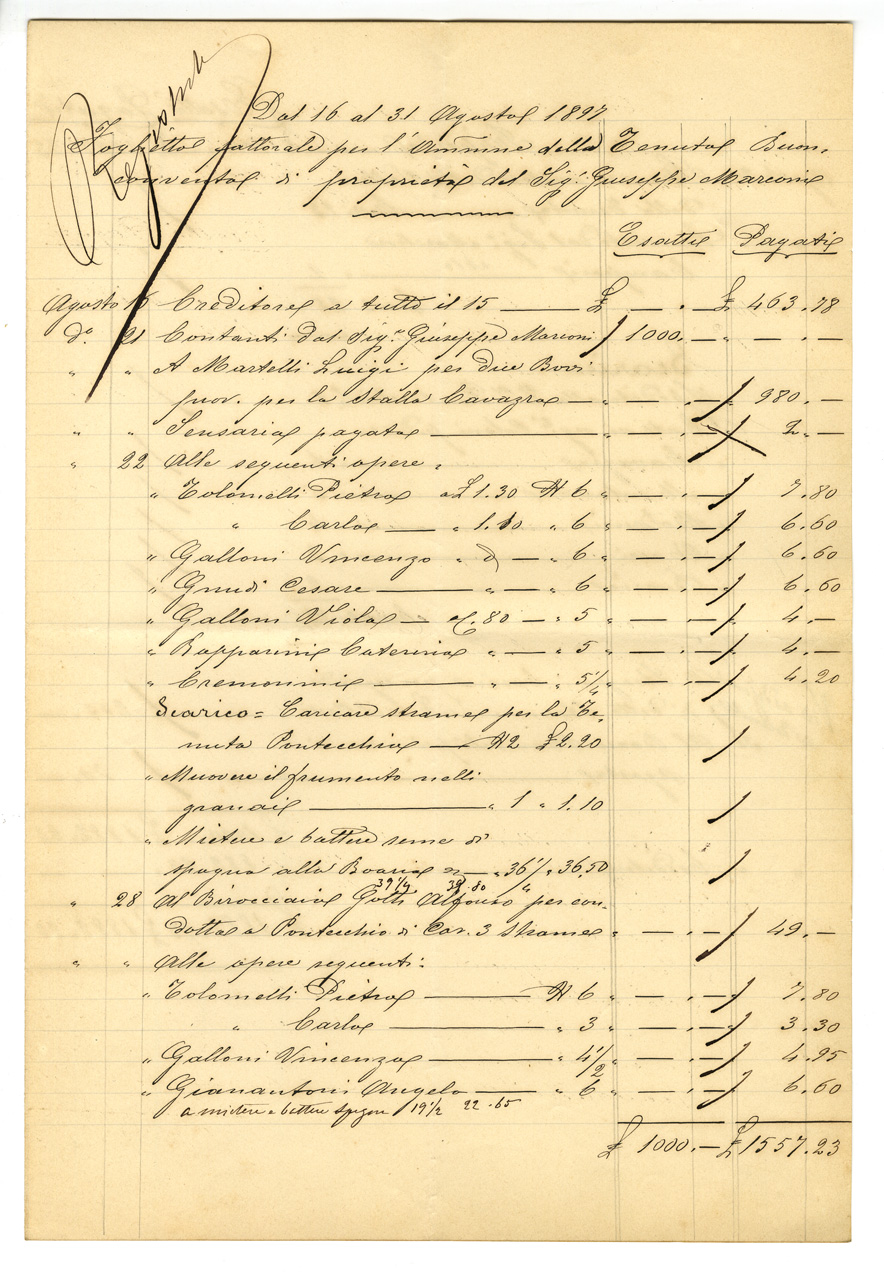 Registrato
Dal 16 al 31 Agosto 1897
Foglietto fattorale per l'Ammne della Tenuta Buon-
convento di proprietà del Sigr. Giuseppe Marconi
Esatti Pagati
Agosto 16 Creditore a tutto il 15 — £ — . — £ 463.78
do. 21 Contanti dal Sigr. Giuseppe Marconi 1000. — „ — . —
„ „ A Martelli Luigi per due Bovi
prov. per la stalla Cavazza — „ — . — „ 980. —
„ „ Sensaria pagata — „ — . — 2. —
„ 22 Alle seguenti opere „
„ Tolomelli Pietro a £ 1.30 N 6 „ — . — 7.80
„ Carlo — „ 1.10 „ 6 „ — . — 6.60
„ Galloni Vincenzo „ d — „ 6 „ — . — 6.60
„ Gnudi Cesare — „ — „ 6 „ — . — 6.60
„ Galloni Viola — £ .80 — „ 5 „ — . — 4. —
„ Rapparini Caterina „ — „ 5 „ — . — 4. —
„ Cremonini — „ — „ 5¼ „ — . — 4.20
Scarico = Caricare strame per la Te-
nuta Pontecchio — N 2 £ 2.20
„ Muovere il frumento nelli
granai — „ 1 „ 1.10
„ Mietere e battere seme di
spagna alla Boaria — „ 36¼ „ 36.50
39¼ 39.80
„ 28 Al Birocciaio Gotti Alfonso per con-
dotta a Pontecchio di Car. 3 strame „ — . — 49. —
„ „ Alle opere seguenti:
„ Tolomelli Pietro — N 6 „ — . — 7.80
„ Carlo — „ 3 „ — . — 3.30
„ Galloni Vincenzo — „ 4½ „ — . — 4.95
„ Gianantoni Angelo — „ 6 „ — . — 6.60
a mietere e battere spagna 19½ 22.65
£ 1000. — £ 1557.23